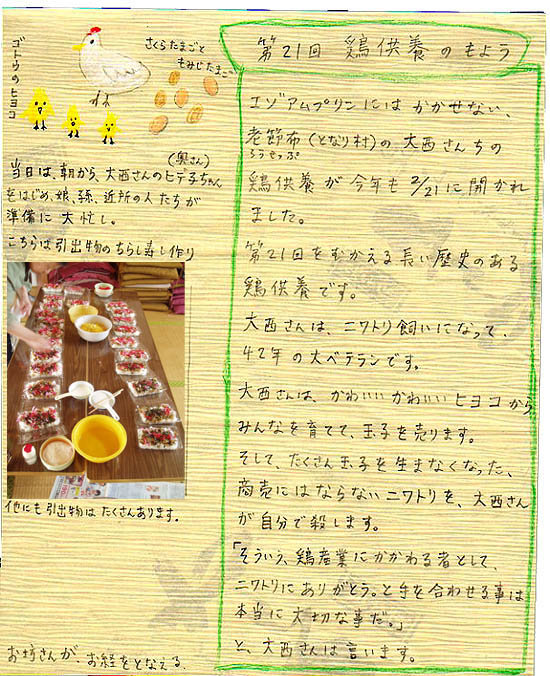 第21回 鶏供養のもよう
エゾアムプリンにはかかせない、
老節布(となり村)の大西さんちの
ろうせっぷ
鶏供養が今年も2/21に開かれ
ました。
第21回をむかえる長い歴史のある
鶏供養です。
大西さんは、ニワトリ飼いになって、
42年の大ベテランです。
大西さんは、かわいいかわいいヒヨコから
みんなを育てて、玉子を売ります。
そして、たくさん玉子を生まなくなった、
商売にはならないニワトリを、大西さん
が自分で殺します。
「そういう、鶏産業にかかわる者として、
ニワトリにありがとう。と手を合わせる事は
本当に大切な事だ。」
と、大西さんは言います。
ゴトウのヒヨコ
さくらたまごと
もみじたまご
(奥さん)
当日は、朝から、大西さんのヒデ子ちゃん
をはじめ、娘、孫、近所の人たちが
準備に大忙し。
こちらは引出物のちらし寿し作り
他にも引出物はたくさんあります。
お坊さんが、お経をとなえる、